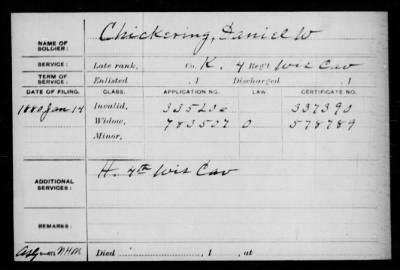 NAME OF SOLDIER: Chickering, Daniel W
SERVICE: Late rank, Co. K. 4 Reg't Wis Cav
TERM OF SERVICE: Enlisted , 1 Discharged , 1
DATE OF FILING. CLASS. APPLICATION NO. LAW. CERTIFICATE NO.
1880 Jan 14 Invalid, 335236 337393
Widow, 783537 D 578789
Minor,
ADDITIONAL SERVICES: H. 4th Wis Cav
REMARKS:
Died , 1 , at